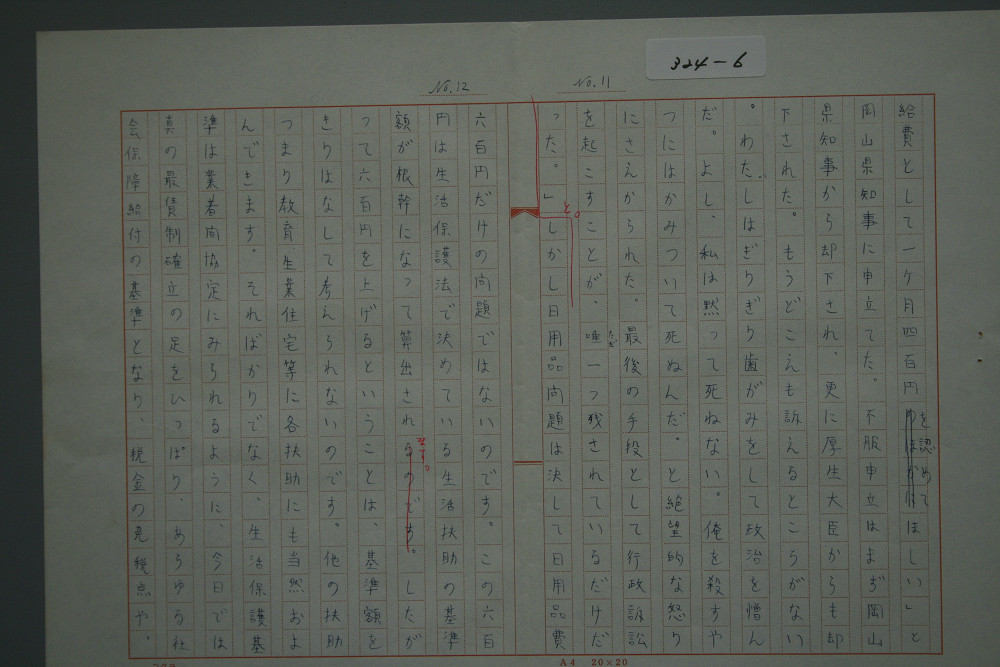 324-6
No.11
給費として一ヶ月四百円を認めてほしい」と
岡山県知事に申立てた。不服申立はまず岡山
県知事から却下され、更に厚生大臣からも却
下された。もうどこえも訴えるところがない
。わたしはぎりぎり歯がみをして政治を憎ん
だ。よし、私は黙って死ねない。俺を殺すや
つにはかみついて死ぬんだ。と絶望的な怒り
にさえかられた。最後の手段として行政訴訟
を起こすことが、唯一つ残されているだけだ
った。」と。
しかし日用品問題は決して日用品費
No.12
六百円だけの問題ではないのです。この六百
円は生活保護法で決めている生活扶助の基準
額が根幹になって算出されます。したが
って六百円を上げるということは、基準額を
きりはなして考えられないのです。他の扶助
つまり教育生業住宅等に各扶助にも当然およ
んできます。そればかりでなく、生活保護基
準は業者間協定にみられるように、今日では
真の最賃制確立の足をひっぱり、あらゆる社
会保障給付の基準となり、税金の免税点や、
A4 20×20